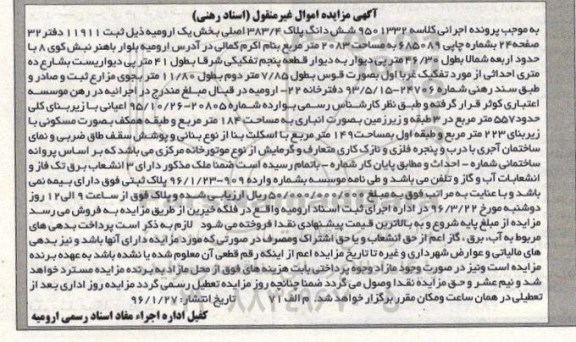 آگهی مزایده اموال غیرمنقول (اسناد رهنی)
به موجب پرونده اجرائی کلاسه ۹۵۰۱۳۳۲ ششدانگ پلاک ۳۸۳/۴ اصلی بخش یک ارومیه ذیل ثبت ۱۱۹۱۱ دفتر ۳۲
صفحه ۲۴ بشماره چاپی ۶۸۵۰۸۹ به مساحت ۲۰۸۳ متر مربع بنام اکرم کمالی در آدرس ارومیه بلوار باهنر نبش کوی ۸ با
حدود اربعه شمالا بطول ۴۶/۳۰ متر پی دیوار به دیوار قطعه پنجم تفکیکی شرقا بطول ۴۱ متر پی دیواریست بشارع ده
متری احداثی از مورد تفکیک غربا اول بصورت قوس بطول ۷/۸۵ متر دوم بطول ۱۱/۸۰ متر بجوی مزارع ثبت و صادر و
طبق سند رهنی شماره ۲۴۷۰۶۸-۹۳/۵/۱۵ دفترخانه ۲۲- ارومیه در قبال مبلغ مندرج در اجرائیه در رهن موسسه
اعتباری کوثر قرار گرفته و طبق نظر کارشناس رسمی بوارده شماره ۲۰۸۰۵-۹۵/۱۰/۲۶ اعیانی با زیربنای کلی
حدود ۵۵۷ متر مربع در ۳ طبقه و زیرزمین بصورت انباری به مساحت ۱۸۴ متر مربع و طبقه همکف بصورت مسکونی با
زیربنای ۲۲۳ متر مربع و طبقه اول بمساحت ۱۴۹ متر مربع با اسکلت بنا از نوع بنائی و پوشش سقف طاق ضربی و نمای
ساختمان آجری با درب و پنجره فلزی و نازک کاری متعارف و گرمایش از نوع موتورخانه مرکزی می باشد که بر اساس پروانه
ساختمانی شماره - احداث و مطابق پایان کار شماره - باتمام رسیده است ضمنا ملک مذکور دارای ۳ انشعاب برق تک فاز و
انشعابات آب و گاز و تلفن می باشد و طی نامه موسسه بشماره وارده ۹۰۹-۹۶/۱/۲۳ پلاک ثبتی فوق دارای بیمه نمی
باشد و با عنایت به مراتب فوق به مبلغ ۵۰/۰۰۰/۰۰۰/۰۰۰ ریال ارزیابی شده و پلاک فوق از ساعت ۹ الی ۱۲ روز
دوشنبه مورخ ۹۶/۳/۲۲ در اداره اجرای ثبت اسناد ارومیه واقع در فلکه خیرین از طریق مزایده به فروش می رسد
مزایده از مبلغ پایه شروع و به بالاترین قیمت پیشنهادی نقدا فروخته می شود لازم به ذکر است پرداخت بدهی های
مربوط به آب، برق، گاز اعم از حق انشعاب و یا حق اشتراک و مصرف در صورتی که مورد مزایده دارای آنها باشد و نیز بدهی
های مالیاتی و عوارض شهرداری و غیره تا تاریخ مزایده اعم از اینکه رقم قطعی آن معلوم شده یا نشده باشد به عهده برنده
مزایده است و نیز در صورت وجود مازاد وجوه پرداختی بابت هزینه های فوق از محل مازاد به برنده مزایده مسترد خواهد
شد و نیم عشر و حق مزایده نقدا وصول می گردد ضمنا چنانچه روز مزایده تعطیل رسمی گردد مزایده روز اداری بعد از
تعطیلی در همان ساعت ومکان مقرر برگزار خواهد شد. م الف ۷۱ تاریخ انتشار: ۹۶/۱/۲۷
کفیل اداره اجراء مفاد اسناد رسمی ارومیه